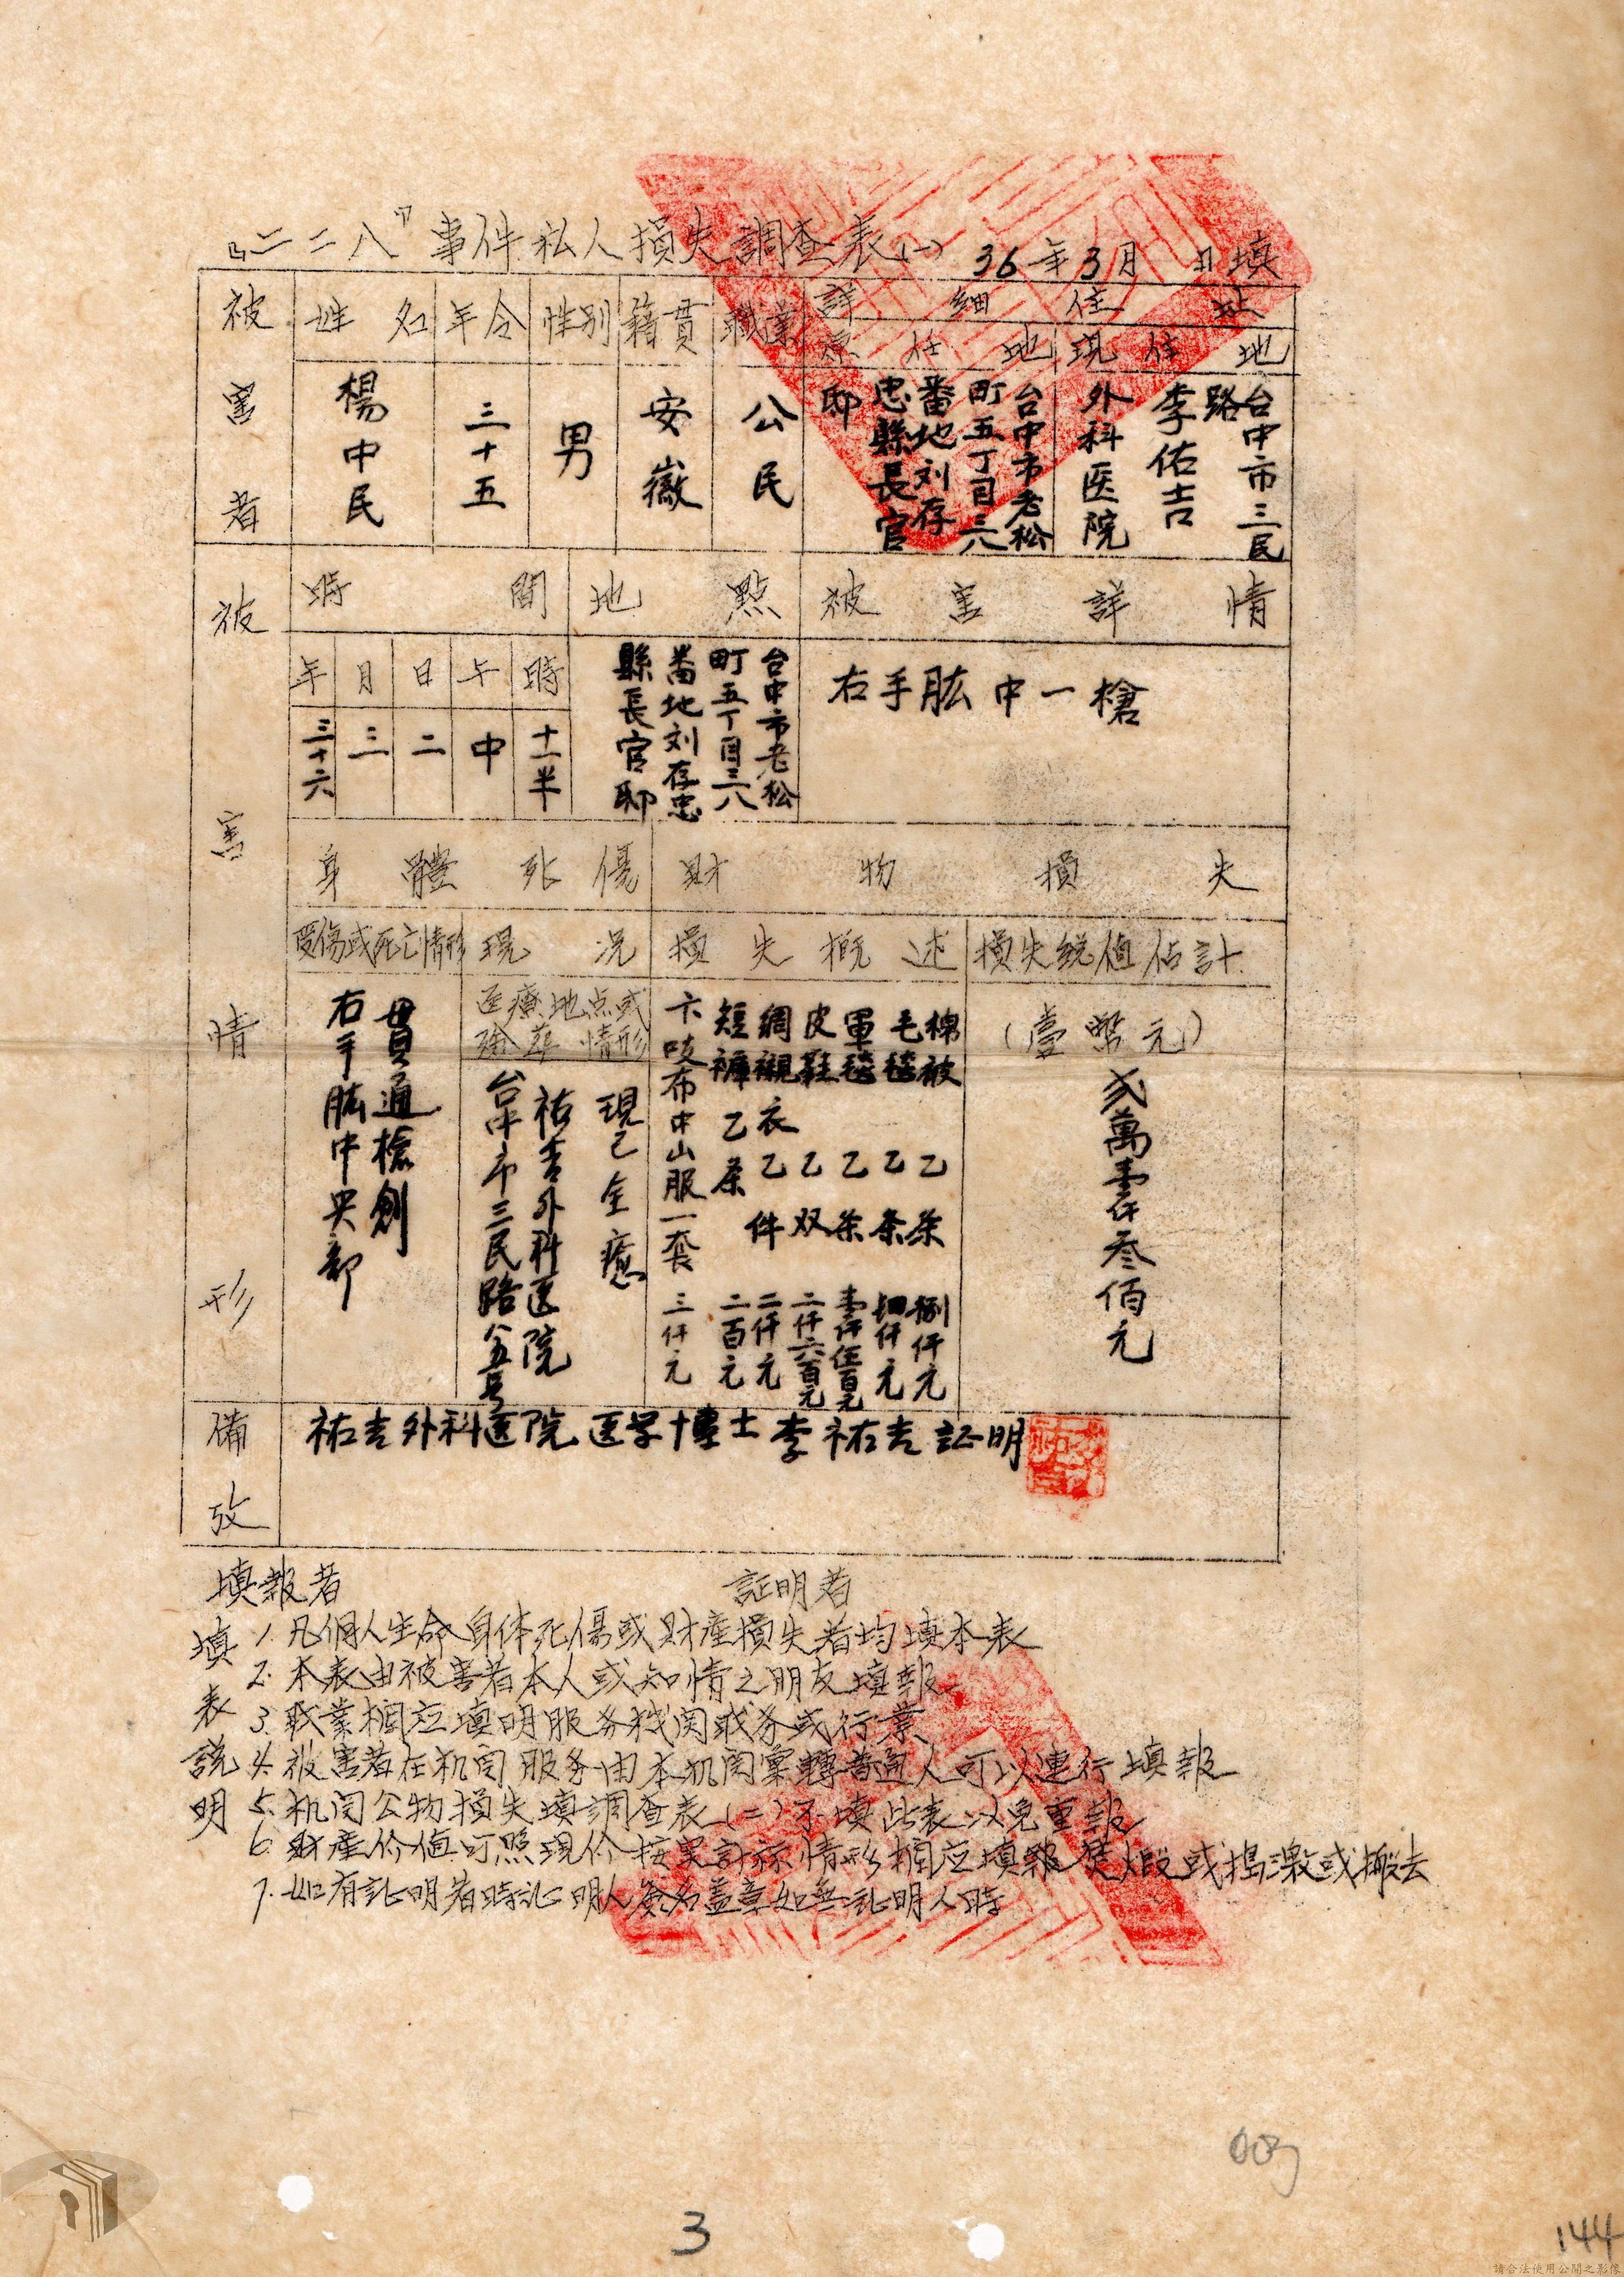 『二二八』事件私人損失調查表(一) 36年3月 日填
被害者
姓名
年令
性別
籍貫
職業
詳細住址
原住地
現住地
楊中民
三十五
男
安徽
公民
台中市老松
町五丁目三八
番地刘存
忠縣長官
邸
台中市三民
路
李佑吉
外科医院
被害情形
時間
地點
被害詳情
年
月
日
午
時
三十六
三
二
中
十一半
台中市老松
町五丁目三八
番地刘存忠
縣長官邸
右手肱中一槍
身體死傷
財物損失
受傷或死亡情形
現況
損失概述
損失総值估計
貫通槍創
右手肱中央部
医療地点或
殮葬情形
現已全癒
祐吉外科医院
台中市三民路 五号
棉被乙条 捌仟元
毛毯乙条 四仟元
軍毯乙条 壹仟伍百元
皮鞋乙双 二仟六百元
綢襯衣乙件 二仟元
短褲乙条 二百元
卡吱布中山服一套 三仟元
(臺幣元)
弍萬壹仟叁佰元
備攷
祐吉外科医院 医学博士 李祐吉 証明
填報者
証明者
填表說明
1. 凡個人生命身体死傷或財產損失者均填本表
2. 本表由被害者本人或知情之朋友填報
3. 职業欄应填明服务机関职务或行業
4. 被害者在机関服务由本机関彙轉普通人可以逕行填報
5. 机関公物損失填調查表(二)不填此表以免重報
6. 財產价值可照現价按実計 情形欄应填報焚燬或搗 或搬去
7. 如有証明者時証明人簽名蓋章如無証明人時
3
144
請合法使用公開之影像